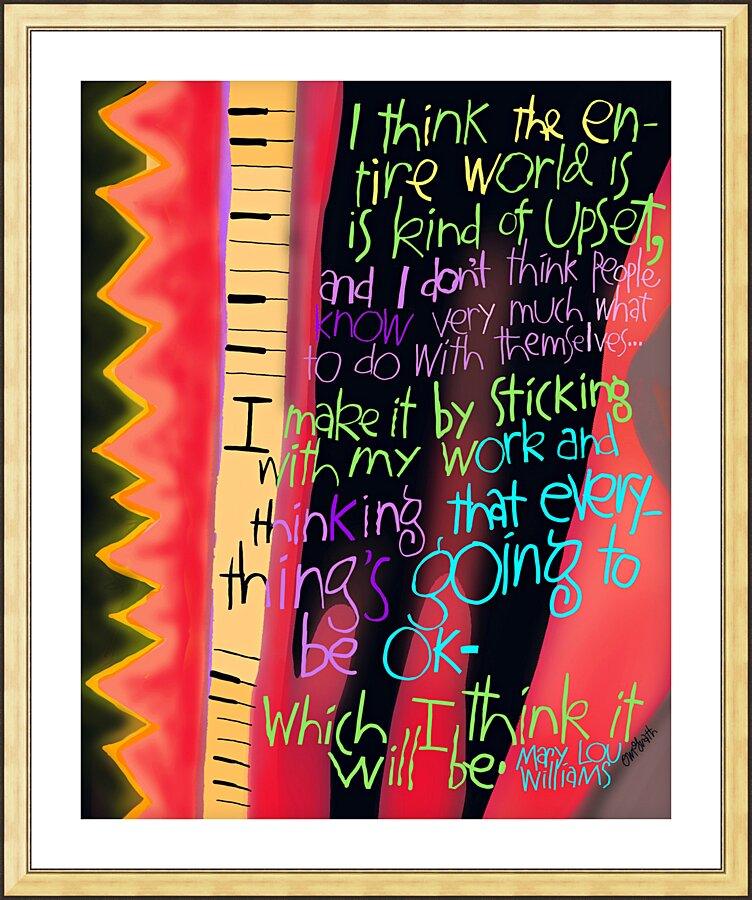 I think the en-
tire world is
is kind of upset,
and I don't think people
know very much what
to do with themselves...
I make it by sticking
with my work and
thinking that every-
thing's going to
be OK-
which I think it
will be.
Mary Lou
Williams
© McGrath